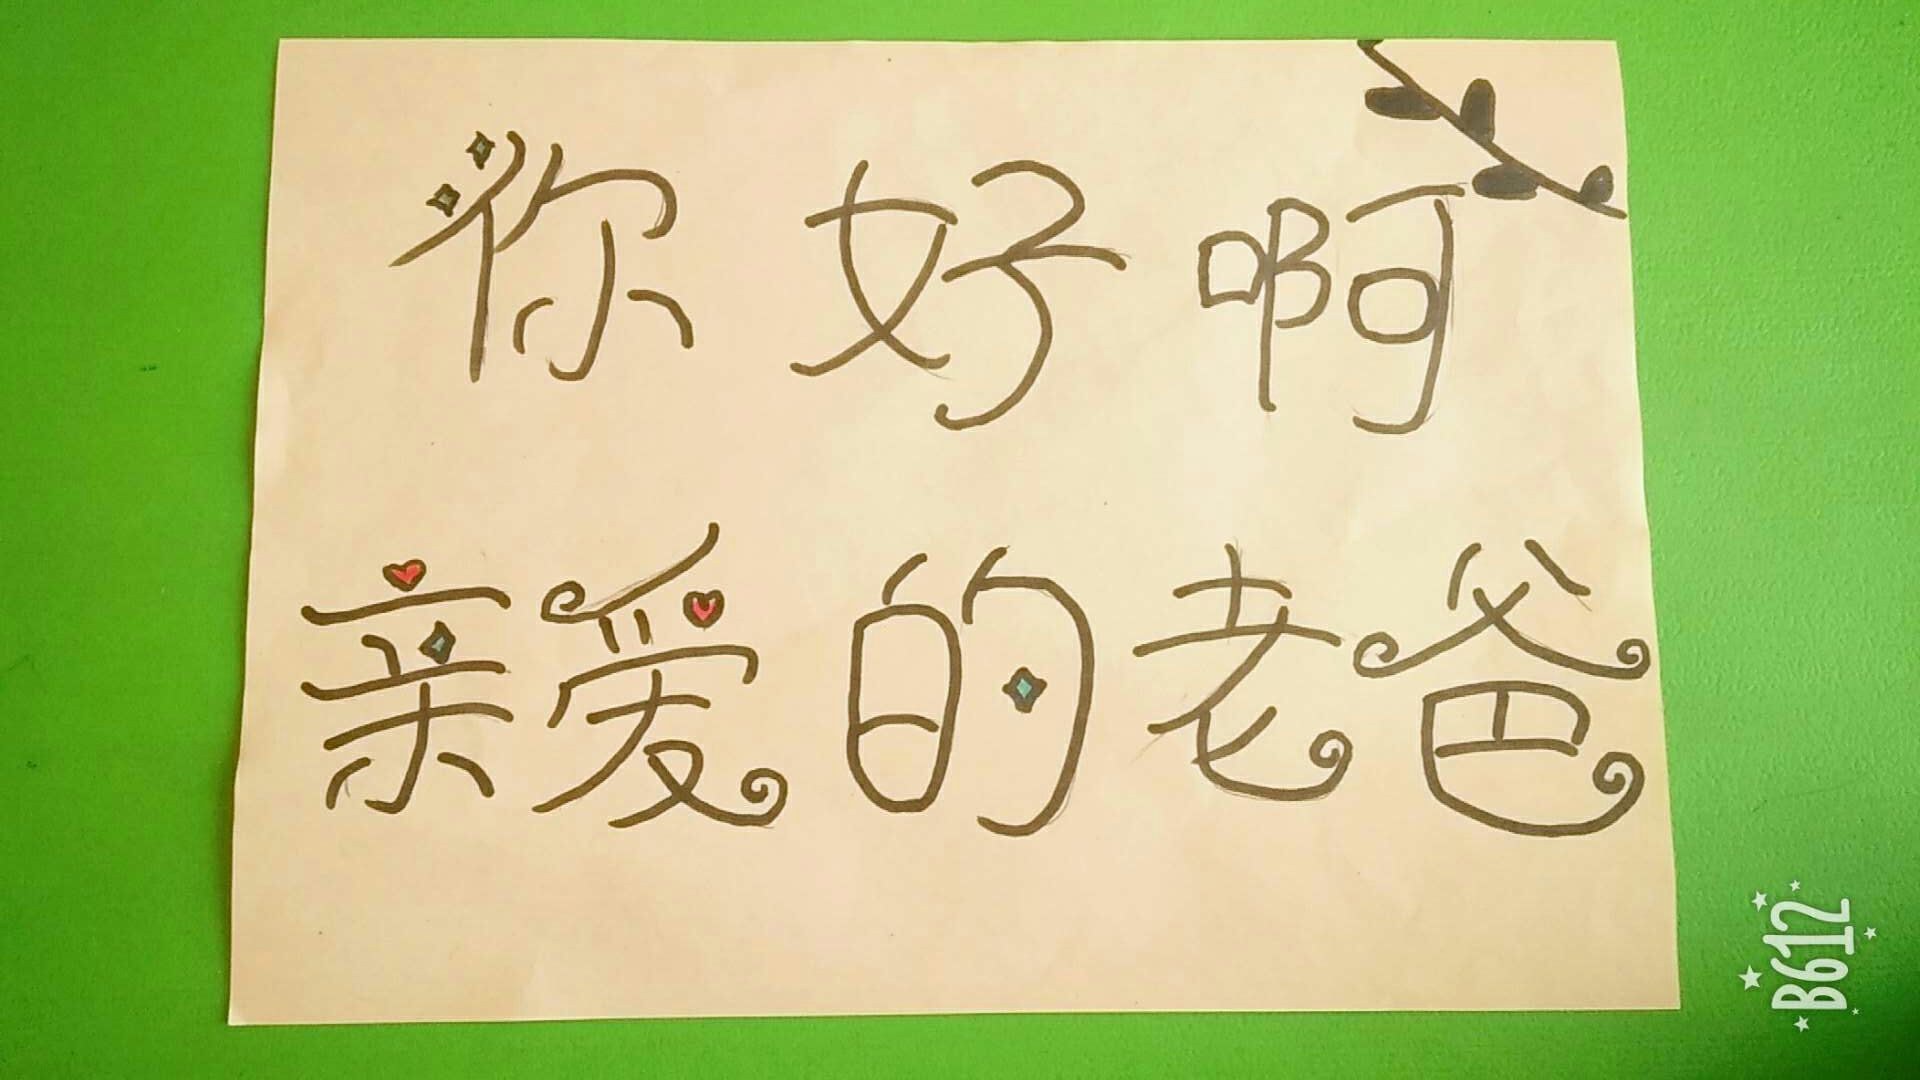 你好啊
亲爱的老爸
B612